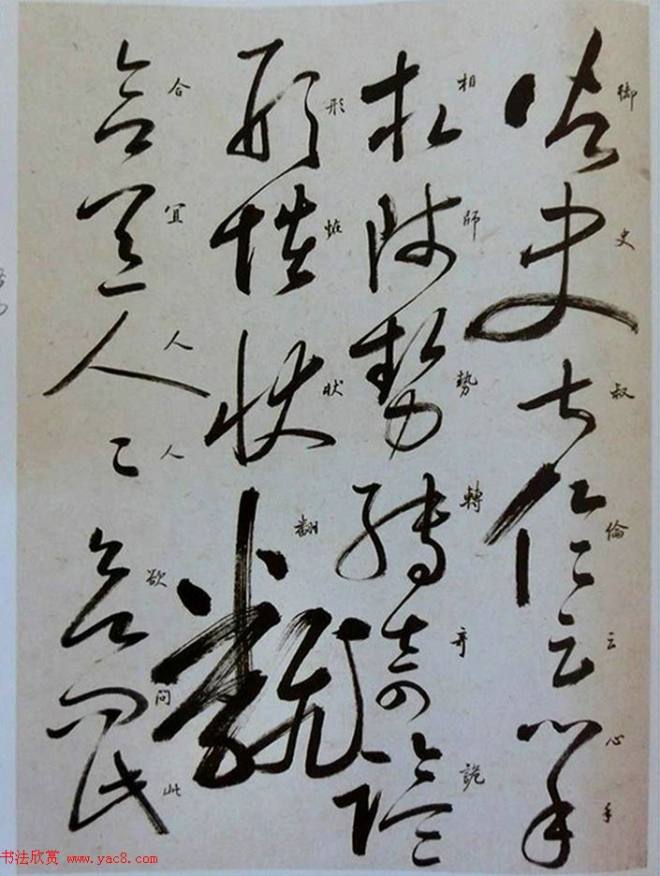 御史叔倫云心手
相師勢轉奇詭
形恠状翻
合宜人人欲問此
书法欣赏 www.yac8.com